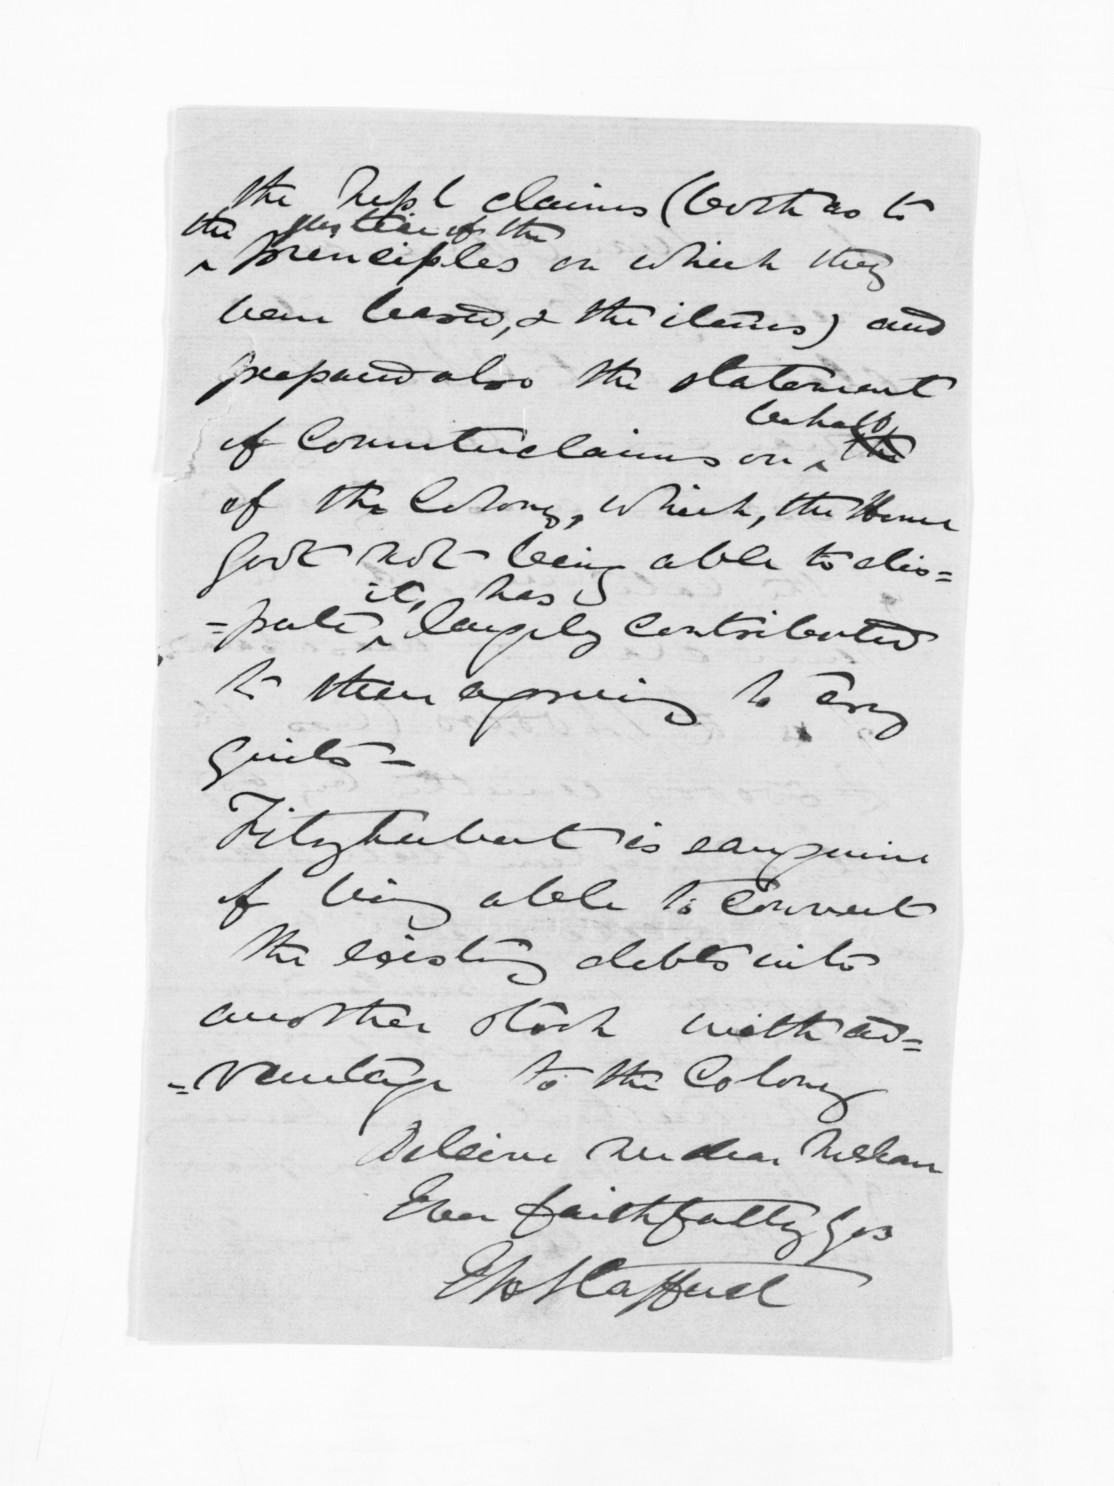 the Impl claims (both as to
the justice of the
principles on which they
were based, & the items) and
prepared also the statement
behalf
of Counterclaims on the
of the Colony, which, the Home
Govt not being able to dis=
it, has
=pute, largely contributed
to their agreeing to cry
quits –
Fitzherbert is sanguine
of being able to convert
the existing debts into
another stock with ad=
=vantage to the Colony
Believe me dear McLean
Ever faithfully Yrs
EW Stafford